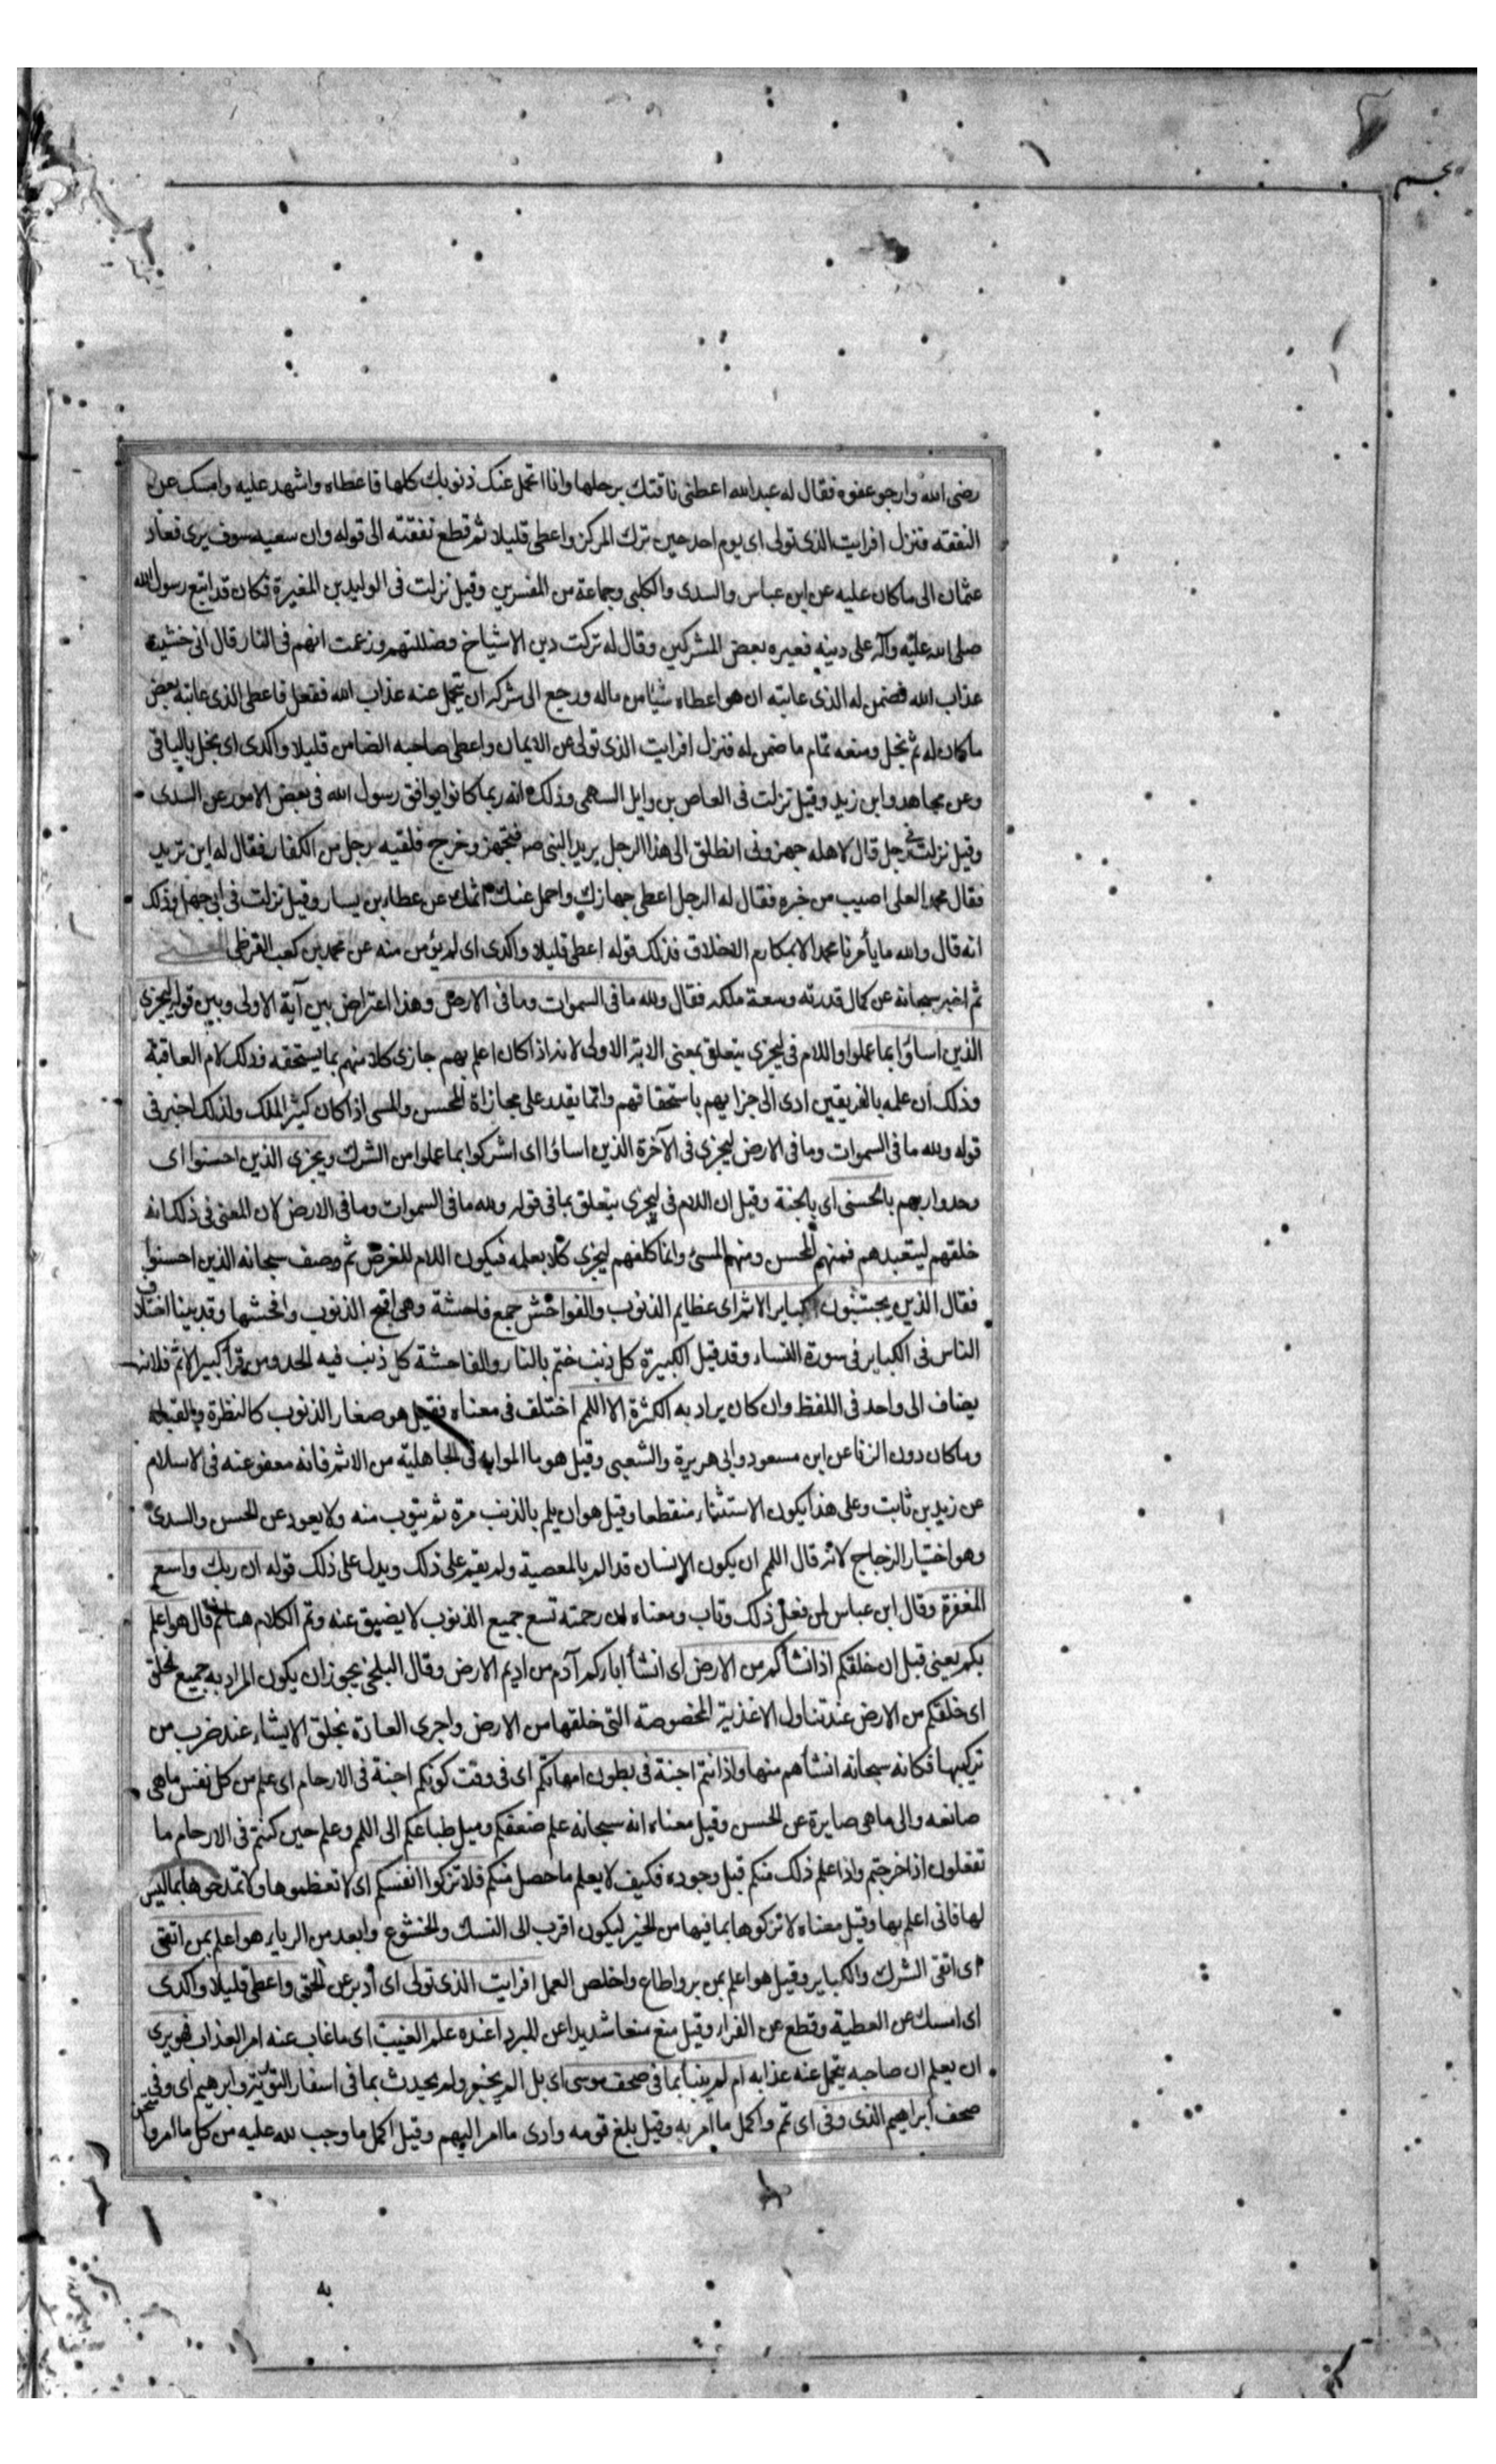 نجم
رضى الله وارجو عفوه فقال له عبدالله اعطنى ناقتك برحلها وانا اتحمل عنك ذنوبك كلها فاعطاه واشهد عليه وامسك عن
النفقه فنزل افرايت الذى تولى اى يوم احد حين ترك المركز واعطى قليلا ثم قطع نفقته الى قوله وان سعيه سوف يرى فعاد
عثمان الى ماكان عليه عن ابن عباس والسدى والكلبى وجماعة من المفسرين وقيل نزلت فى الوليد بن المغيرة فكان قد اتبع رسول الله
صلى الله عليه وآله على دينه فعيره بعض المشركين وقال له تركت دين الاشياخ وضللتهم وزعمت انهم فى النار قال انى خشيت
عذاب الله فضمن له الذى عاتبه ان هو اعطاه شيئا من ماله ورجع الى شركه ان يتحمل عنه عذاب الله ففعل فاعطى الذى عاتبه بعض
ماكان له ثم بخل ومنعه تمام ما ضمن له فنزل افرايت الذى تولى عن الايمان واعطى صاحبه الضامن قليلا واكدى اى بخل بالباقى
وعن مجاهد وابن زيد وقيل نزلت فى العاص بن وايل السهمى وذلك انه ربما كانوا يوافق رسول الله فى بعض الامور عن السدى
وقيل نزلت فى رجل قال لاهله جهزونى انطلق الى هذا الرجل يريد النبى صم فتجهز وخرج فلقيه رجل من الكفار فقال له اين تريد
فقال محمد العلى اصيب من خيره فقال له الرجل اعطى جهازك واحمل عنك اثمك عن عطاء بن يسار وقيل نزلت فى ابى جهل وذلك
انه قال والله ما يأمرنا محمد الا بمكارم الاخلاق فذلك قوله اعطى قليلا واكدى اى لم يؤمن منه عن محمد بن كعب القرظى
ثم اخبر سبحانه عن كمال قدرته وسعة ملكه فقال ولله مافى السموات ومافى الارض وهذا اعتراض بين آية الاولى وبين قوله ليجزى
الذين اساؤا بما عملوا واللام فى ليجزى يتعلق بمعنى الاية الاولى لانه اذا كان اعلم بهم جازى كلا منهم بما يستحقه فذلك لام العاقبة
وذلك ان علمه بالفريقين ادى الى جزايهم باستحقاقهم وانما يقدر على مجازاة المحسن والمسى اذا كان كثير الملك ولذلك اخبر فى
قوله ولله مافى السموات ومافى الارض ليجزى فى الآخرة الذين اساؤا اى اشركوا بما عملوا من الشرك ويجزى الذين احسنوا اى
وحدوا ربهم بالحسنى اى بالجنة وقيل ان اللام فى ليجزى يتعلق بمافى قوله ولله مافى السموات ومافى الارض لان المعنى فى ذلك انه
خلقهم ليتعبدهم فمنهم المحسن ومنهم المسئ وانما كلفهم ليجزى كلا بعلمه فيكون اللام للغرض ثم وصف سبحانه الذين احسنوا
فقال الذين يجتنبون كباير الاثم اى عظايم الذنوب والفواحش جمع فاحشة وهى اقبح الذنوب وافحشها وقد بينا اختلاف
الناس فى الكباير فى سورة النساء وقد قيل الكبيرة كل ذنب ختم بالنار والفاحشة كل ذنب فيه الحد ومن قرأ كبير الاثم فلانه
يضاف الى واحد فى اللفظ وان كان يراد به الكثرة الا اللمم اختلف فى معناه فقيل هو صغار الذنوب كالنظرة والقبلة
وماكان دون الزنا عن ابن مسعود وابى هريرة والشعبى وقيل هو ما الموا به فى الجاهلية من الاثم فانه معفو عنه فى الاسلام
عن زيد بن ثابت وعلى هذا يكون الاستثناء منقطعا وقيل هو ان يلم بالذنب مرة ثم يتوب منه ولا يعود عن الحسن والسدى
وهو اختيار الزجاج لانه قال اللمم ان يكون الانسان قد الم بالمعصية ولم يقم على ذلك ويدل على ذلك قوله ان ربك واسع
المغفرة وقال ابن عباس لمن فعل ذلك وتاب ومعناه ان رحمته تسع جميع الذنوب لا يضيق عنه وتم الكلام هنا ثم قال هو اعلم
بكم يعنى قبل ان خلقكم اذ انشأكم من الارض اى انشأ اباكم آدم من اديم الارض وقال البلخى يجوز ان يكون المراد به جميع الخلق
اى خلقكم من الارض عند تناول الاغذية المخصوصة التى خلقها من الارض واجرى العادة بخلق الاشياء عند ضرب من
تركيبها فكانه سبحانه انشأهم منها واذ انتم اجنة فى بطون امهاتكم اى فى وقت كونكم اجنة فى الارحام اى علم من كل نفس ماهى
صانعه والى ماهى صايرة عن الحسن وقيل معناه انه سبحانه علم ضعفكم وميل طباعكم الى اللمم وعلم حين كنتم فى الارحام ما
تفعلون اذا خرجتم واذا علم ذلك منكم قبل وجوده فكيف لا يعلم ما حصل منكم فلا تزكوا انفسكم اى لا تعظموها ولا تمدحوها بما ليس
لها فانى اعلم بها وقيل معناه لا تزكوها بما فيها من الخير ليكون اقرب الى النسك والخشوع وابعد من الرياء هو اعلم بمن اتقى
اى اتقى الشرك والكباير وقيل هو اعلم بمن بر واطاع واخلص العمل افرايت الذى تولى اى أدبر عن الحق واعطى قليلا واكدى
اى امسك عن العطية وقطع عن الفراء وقيل منع منعا شديدا عن المبرد اعنده علم الغيب اى ما غاب عنه امر العذاب فهو يرى
ان يعلم ان صاحبه يتحمل عنه عذابه ام لم ينبأ بما فى صحف موسى اى بل الم يخبر ولم يحدث بما فى اسفار التورية وابرهيم اى وفى
صحف ابراهيم الذى وفى اى تمم واكمل ما امر به وقيل بلغ قومه وادى ما امر اليهم وقيل اكمل ما وجب لله عليه من كل ما امروا
به